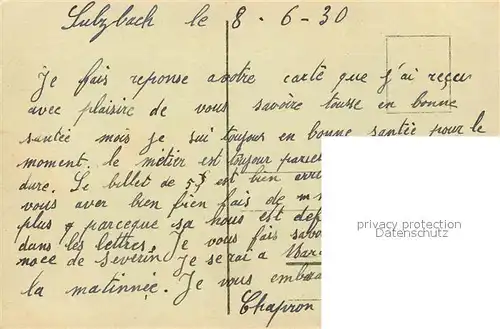 Sulzbach le 8-6-30
Je fais reponse avotre carte que j'ai reçeu
avec plaisire de vous savoire tousse en bonne
santée mois je sui toujour en bonne santée pour le
moment. le métier est toujour
dure. Le billet de est bien
vous aver bien bien fais de
plus q parceque sa nous est
dans les lettres, Je vous fais
noce de Severin Je serai a
la matinnée. Je vous
Chapron
privacy protection
Datenschutz